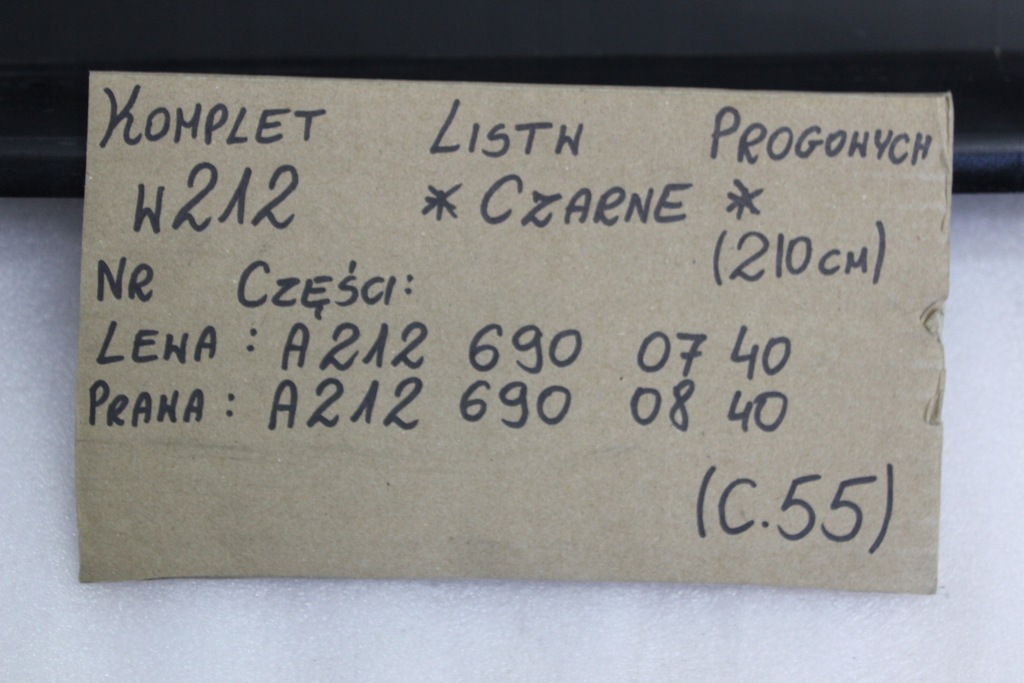 KOMPLET LISTW PROGOWYCH
W212 * CZARNE *
(210 CM)
NR CZĘŚCI:
LEWA : A212 690 07 40
PRAWA : A212 690 08 40
(C.55)